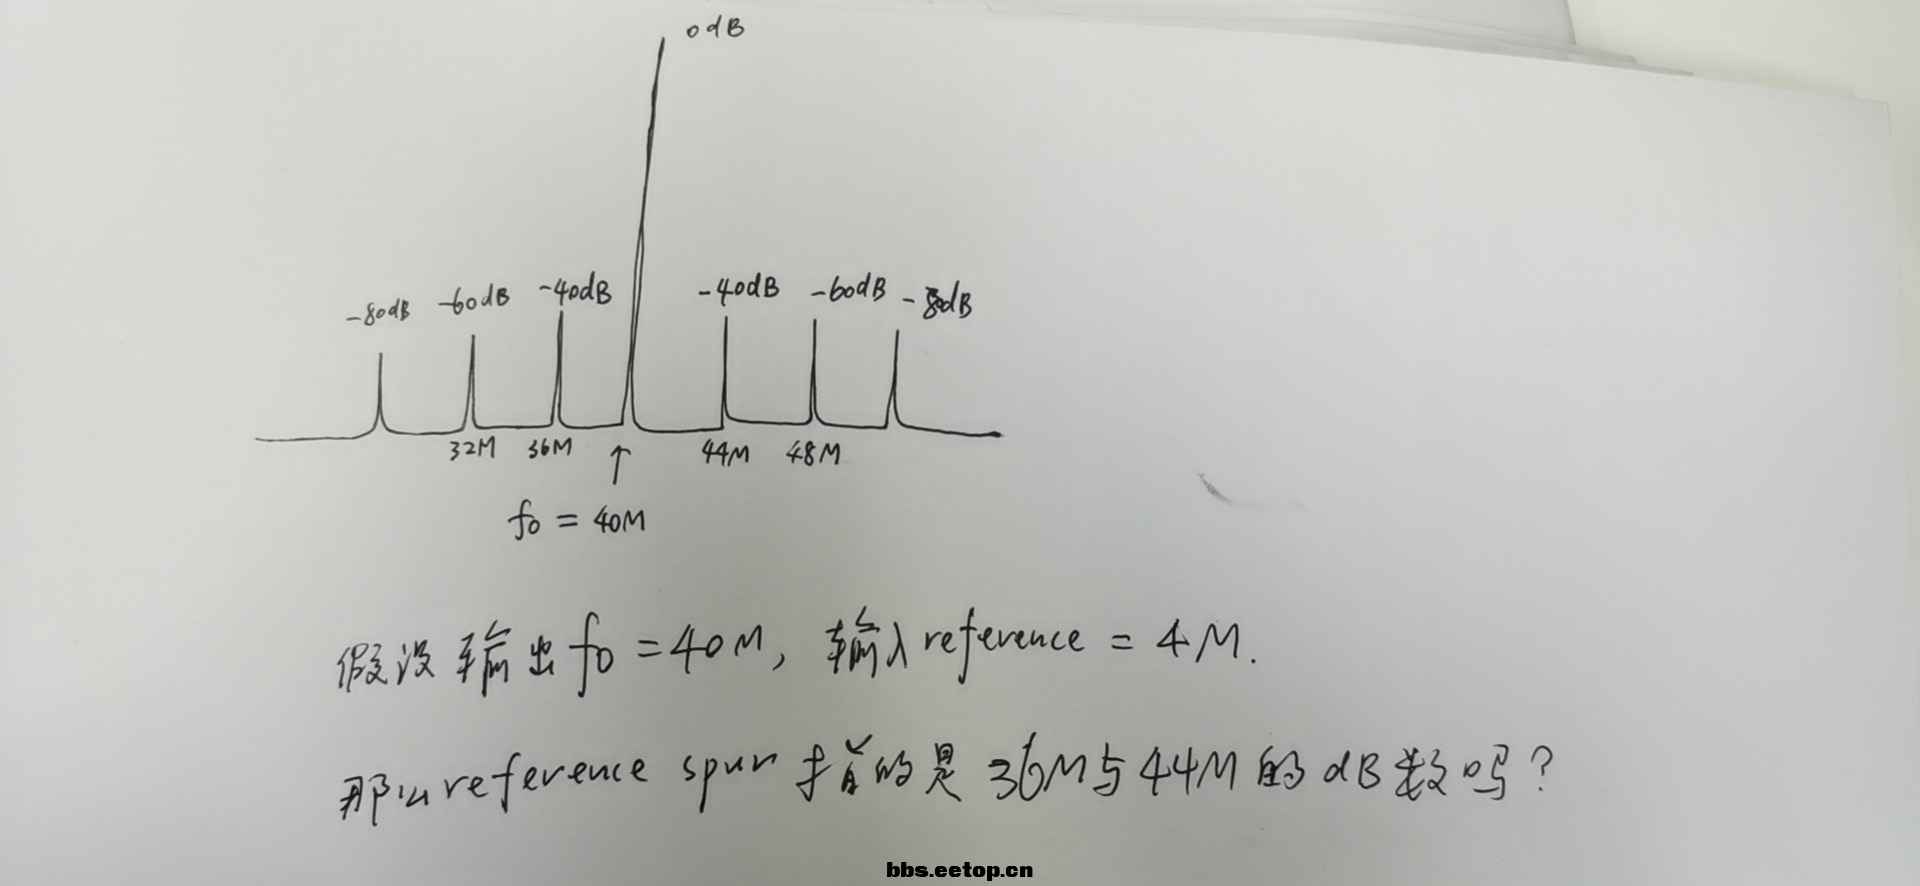 0dB
-80dB -60dB -40dB -40dB -60dB -80dB
32M 36M ↑ 44M 48M
fo = 40M
假设输出fo=40M,输入reference = 4M.
那么reference spur 指的是 36M与44M的dB数吗?
bbs.eetop.cn